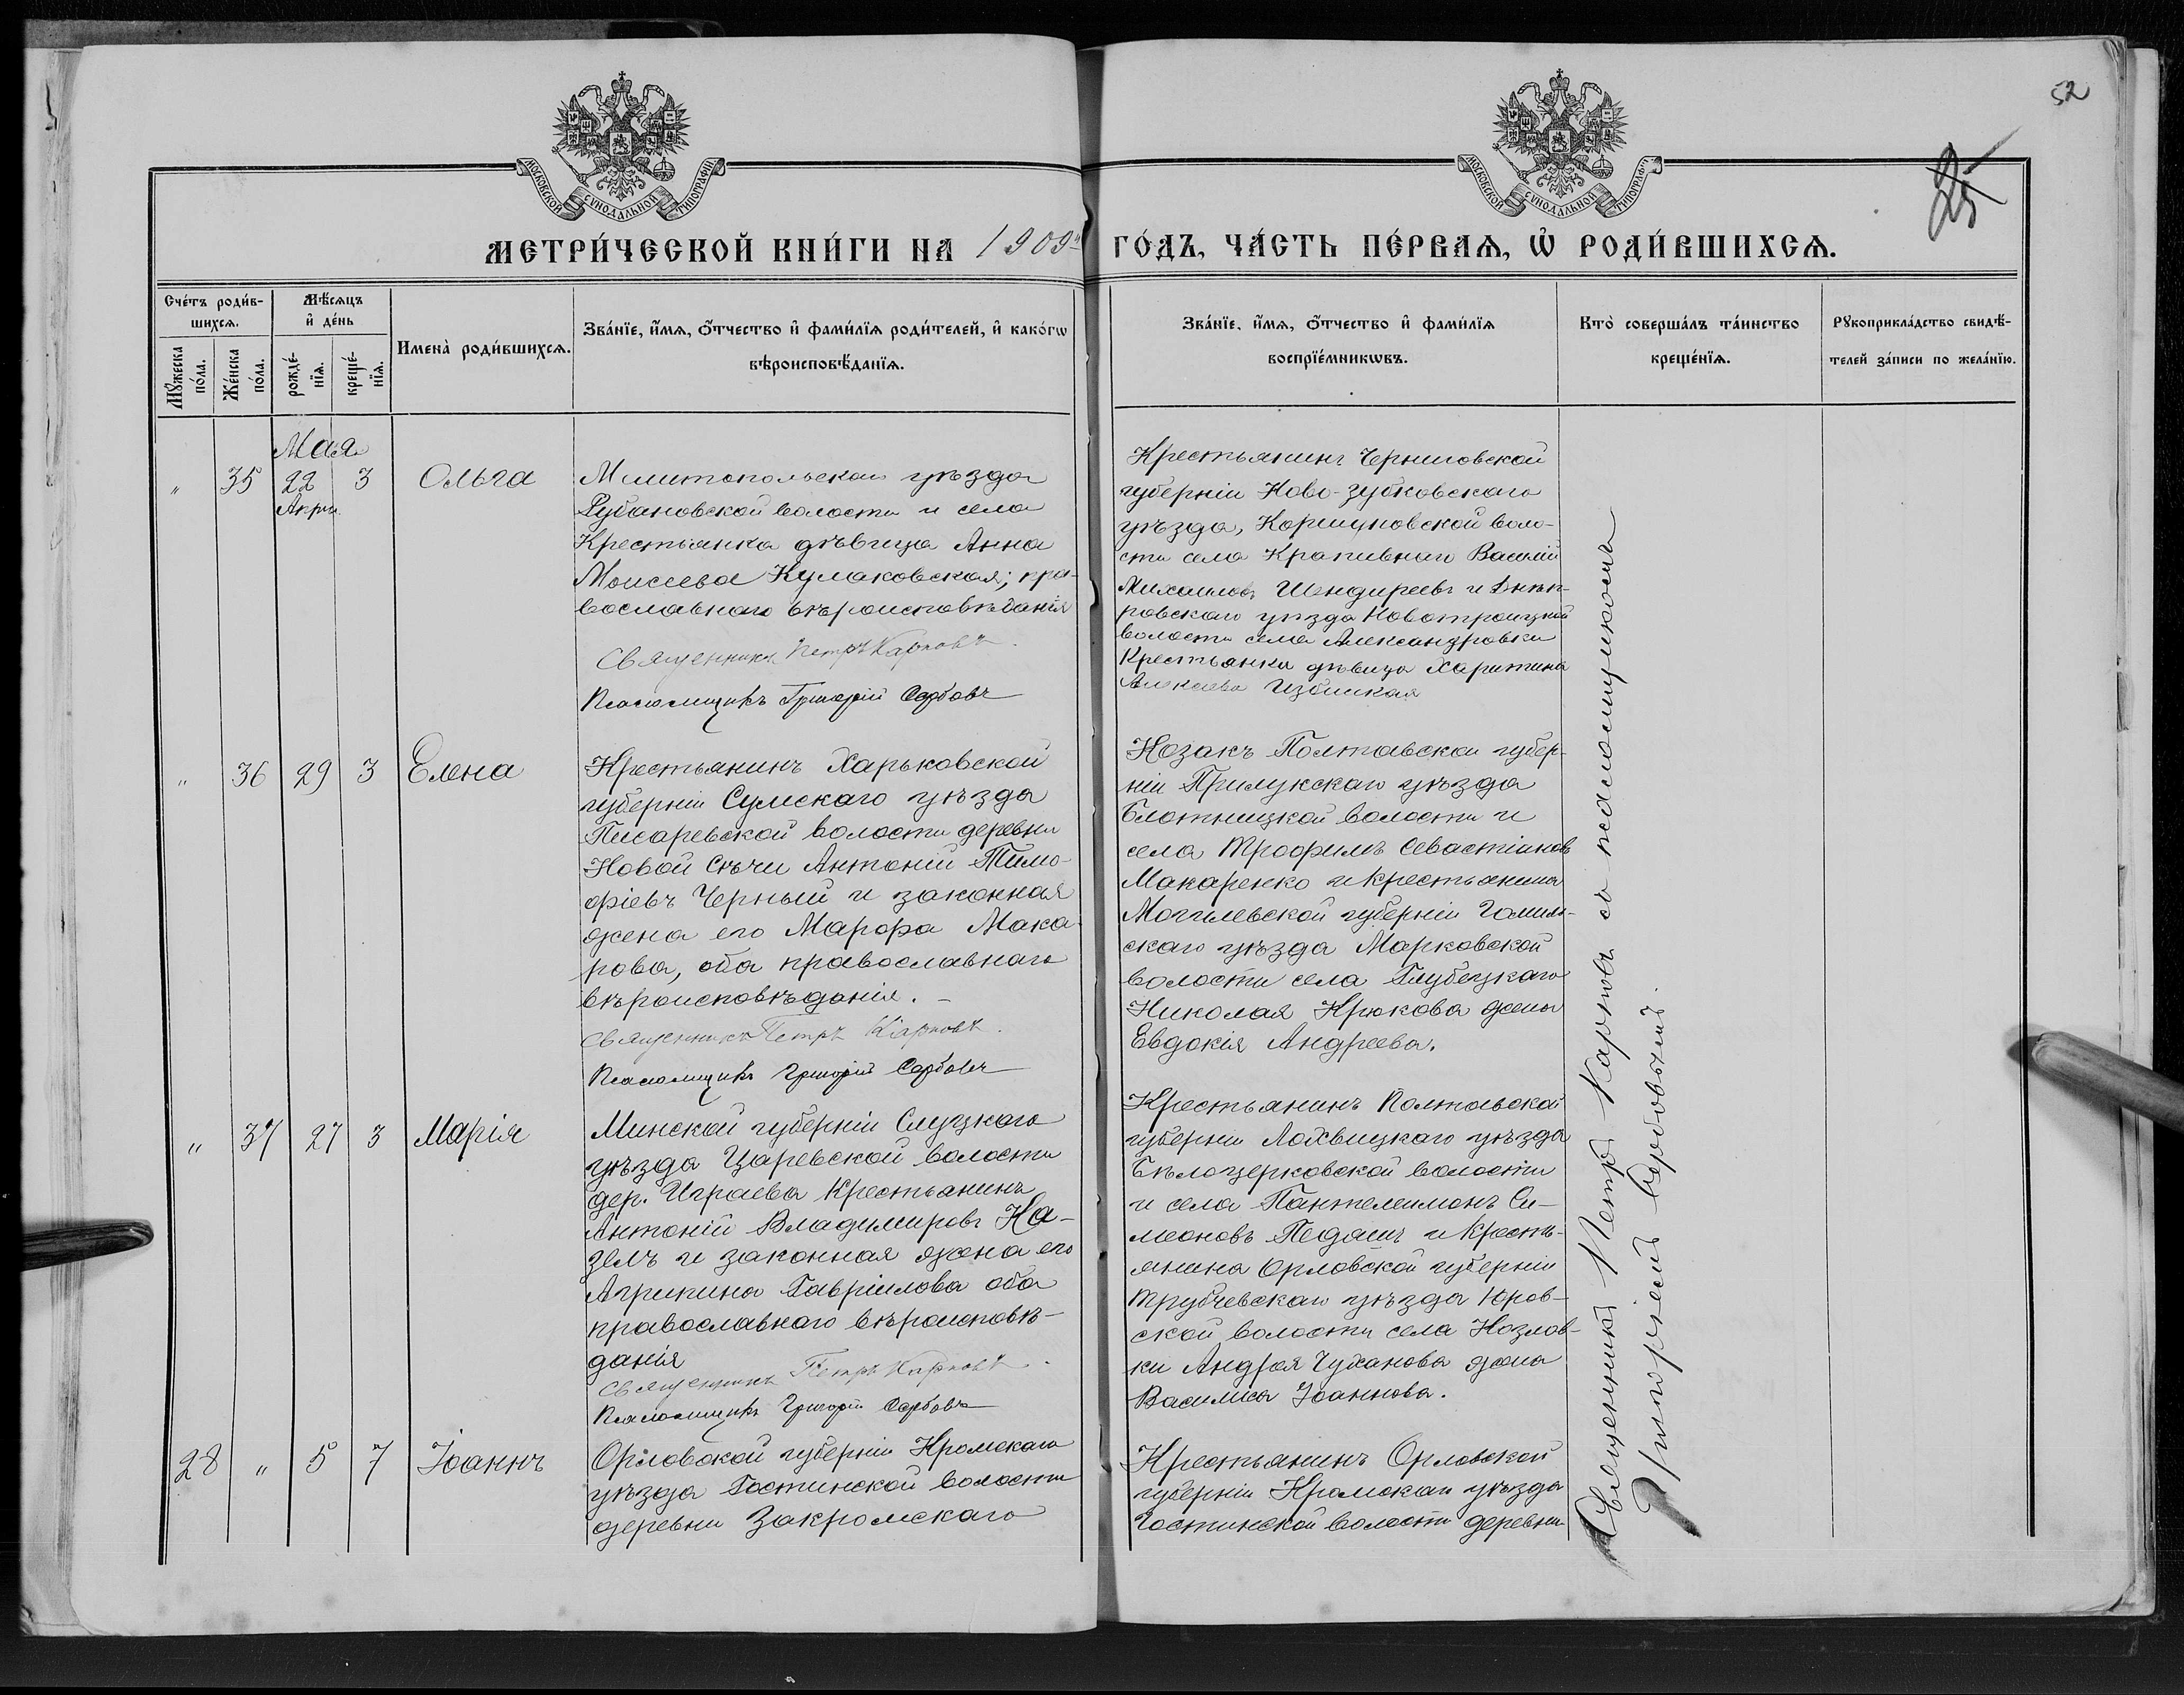 52
25
МОСКОВСКОЙ СѴНОДАЛЬНОЙ ТИПОГРАФІИ
МОСКОВСКОЙ СѴНОДАЛЬНОЙ ТИПОГРАФІИ
МЕТРИ́ЧЕСКОЙ КНИ́ГИ НА 1909й ГО́ДЪ, ЧА́СТЬ ПЕ́РВАѦ, Ѡ҆ РОДИ́ВШИХСѦ.
Сче́тъ роди́в-
шихсѧ.
Мꙋ́жеска
по́ла.
Же́нска
по́ла.
Мѣ́сѧцъ
и҆ де́нь
рожде́-
нїѧ.
креще́-
нїѧ.
Имена̀ роди́вшихсѧ.
Зва́нїе, и҆́мѧ, ѻ҆́тчество и҆ фами́лїѧ роди́телей, и҆ како́гѡ
вѣроисповѣ́данїѧ.
Зва́нїе, и҆́мѧ, ѻ҆́тчество и҆ фами́лїѧ
воспрїе́мникѡвъ.
Кто̀ соверша́лъ та́инство
креще́нїѧ.
Рꙋкоприкла́дство свидѣ́-
телей за́писи по жела́нїю.
Мая
„ 35 22 3 Ольга
Апрѣ
Мелитопольскаго уѣзда
Рубановской волости и села
Крестьянка дѣвица Анна
Моисеева Кулаковская; пра-
вославнаго вѣроисповѣданія
Священникъ Петръ Карповъ.
Псаломщикъ Григорій Сербовъ
Крестьянинъ Черниговской
губерніи Ново-зубковскаго
уѣзда, Коршуновской воло-
сти села Крапивнаго Василій
Михаиловъ Шендиреевъ и Днѣп-
ровскаго уѣзда Новотроицкой
волости села Александровки
Крестьянка дѣвица Харитина
Алексеева Избицкая
„ 36 29 3 Елена
Крестьянинъ Харьковской
губерніи Сумскаго уѣзда
Писаревской волости деревни
Новой Сѣчи Антоній Тимо-
фіевъ Черный и законная
жена его Марфа Мака-
рова, оба православнаго
вѣроисповѣданія. –
Священникъ Петръ Карповъ.
Псаломщикъ Григорій Сербовъ
Козакъ Полтавской губер-
ніи Прилукскаго уѣзда
Блотницкой волости и
села Трофимъ Севастіановъ
Макаренко и крестьянина
Могилевской губерніи Гомель-
скаго уѣзда Марковской
волости села Глубецкаго
Николая Крюкова жена
Евдокія Андреева.
„ 37 27 3 Марія
Минской губерніи Слуцкаго
уѣзда Царевской волости
дер. Играева Крестьянинъ
Антоній Владимировъ Ка-
зелъ и законная жена его
Агрипина Гавріилова оба
православнаго вѣроисповѣ-
данія
Священникъ Петръ Карповъ.
Псаломщикъ Григорій Сербовъ
Крестьянинъ Полтавской
губерніи Лохвицкаго уѣзда
Бѣлоцерковской волости
и села Пантелеимонъ Си-
меоновъ Педашъ и Кресть-
янина Орловской губерніи
Трубчевскаго уѣзда Юров-
ской волости села Козлов-
ки Андрея Чуханова жена
Василиса Іоаннова.
28 „ 5 7 Іоаннъ
Орловской губерніи Кромскаго
уѣзда Гостинской волости
деревни Закромскаго
Крестьянинъ Орловской
губерніи Кромскаго уѣзда
Гостинской волости деревни
Священникъ Петръ Карповъ съ псаломщикомъ
Григоріемъ Сербовымъ.